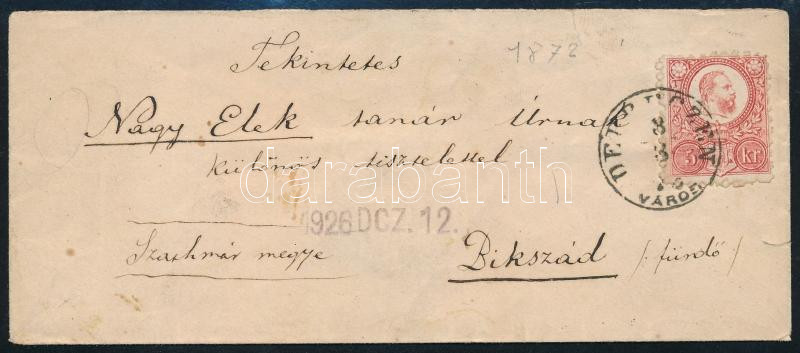 1872
Tekintetes
Nagy Elek tanár Úrnak
különös tisztelettel
darabanth
1926 DCZ. 12.
Szathmár megye
Bikszád /: fürdő /
DEBRECZEN
VÁROS
5 kr